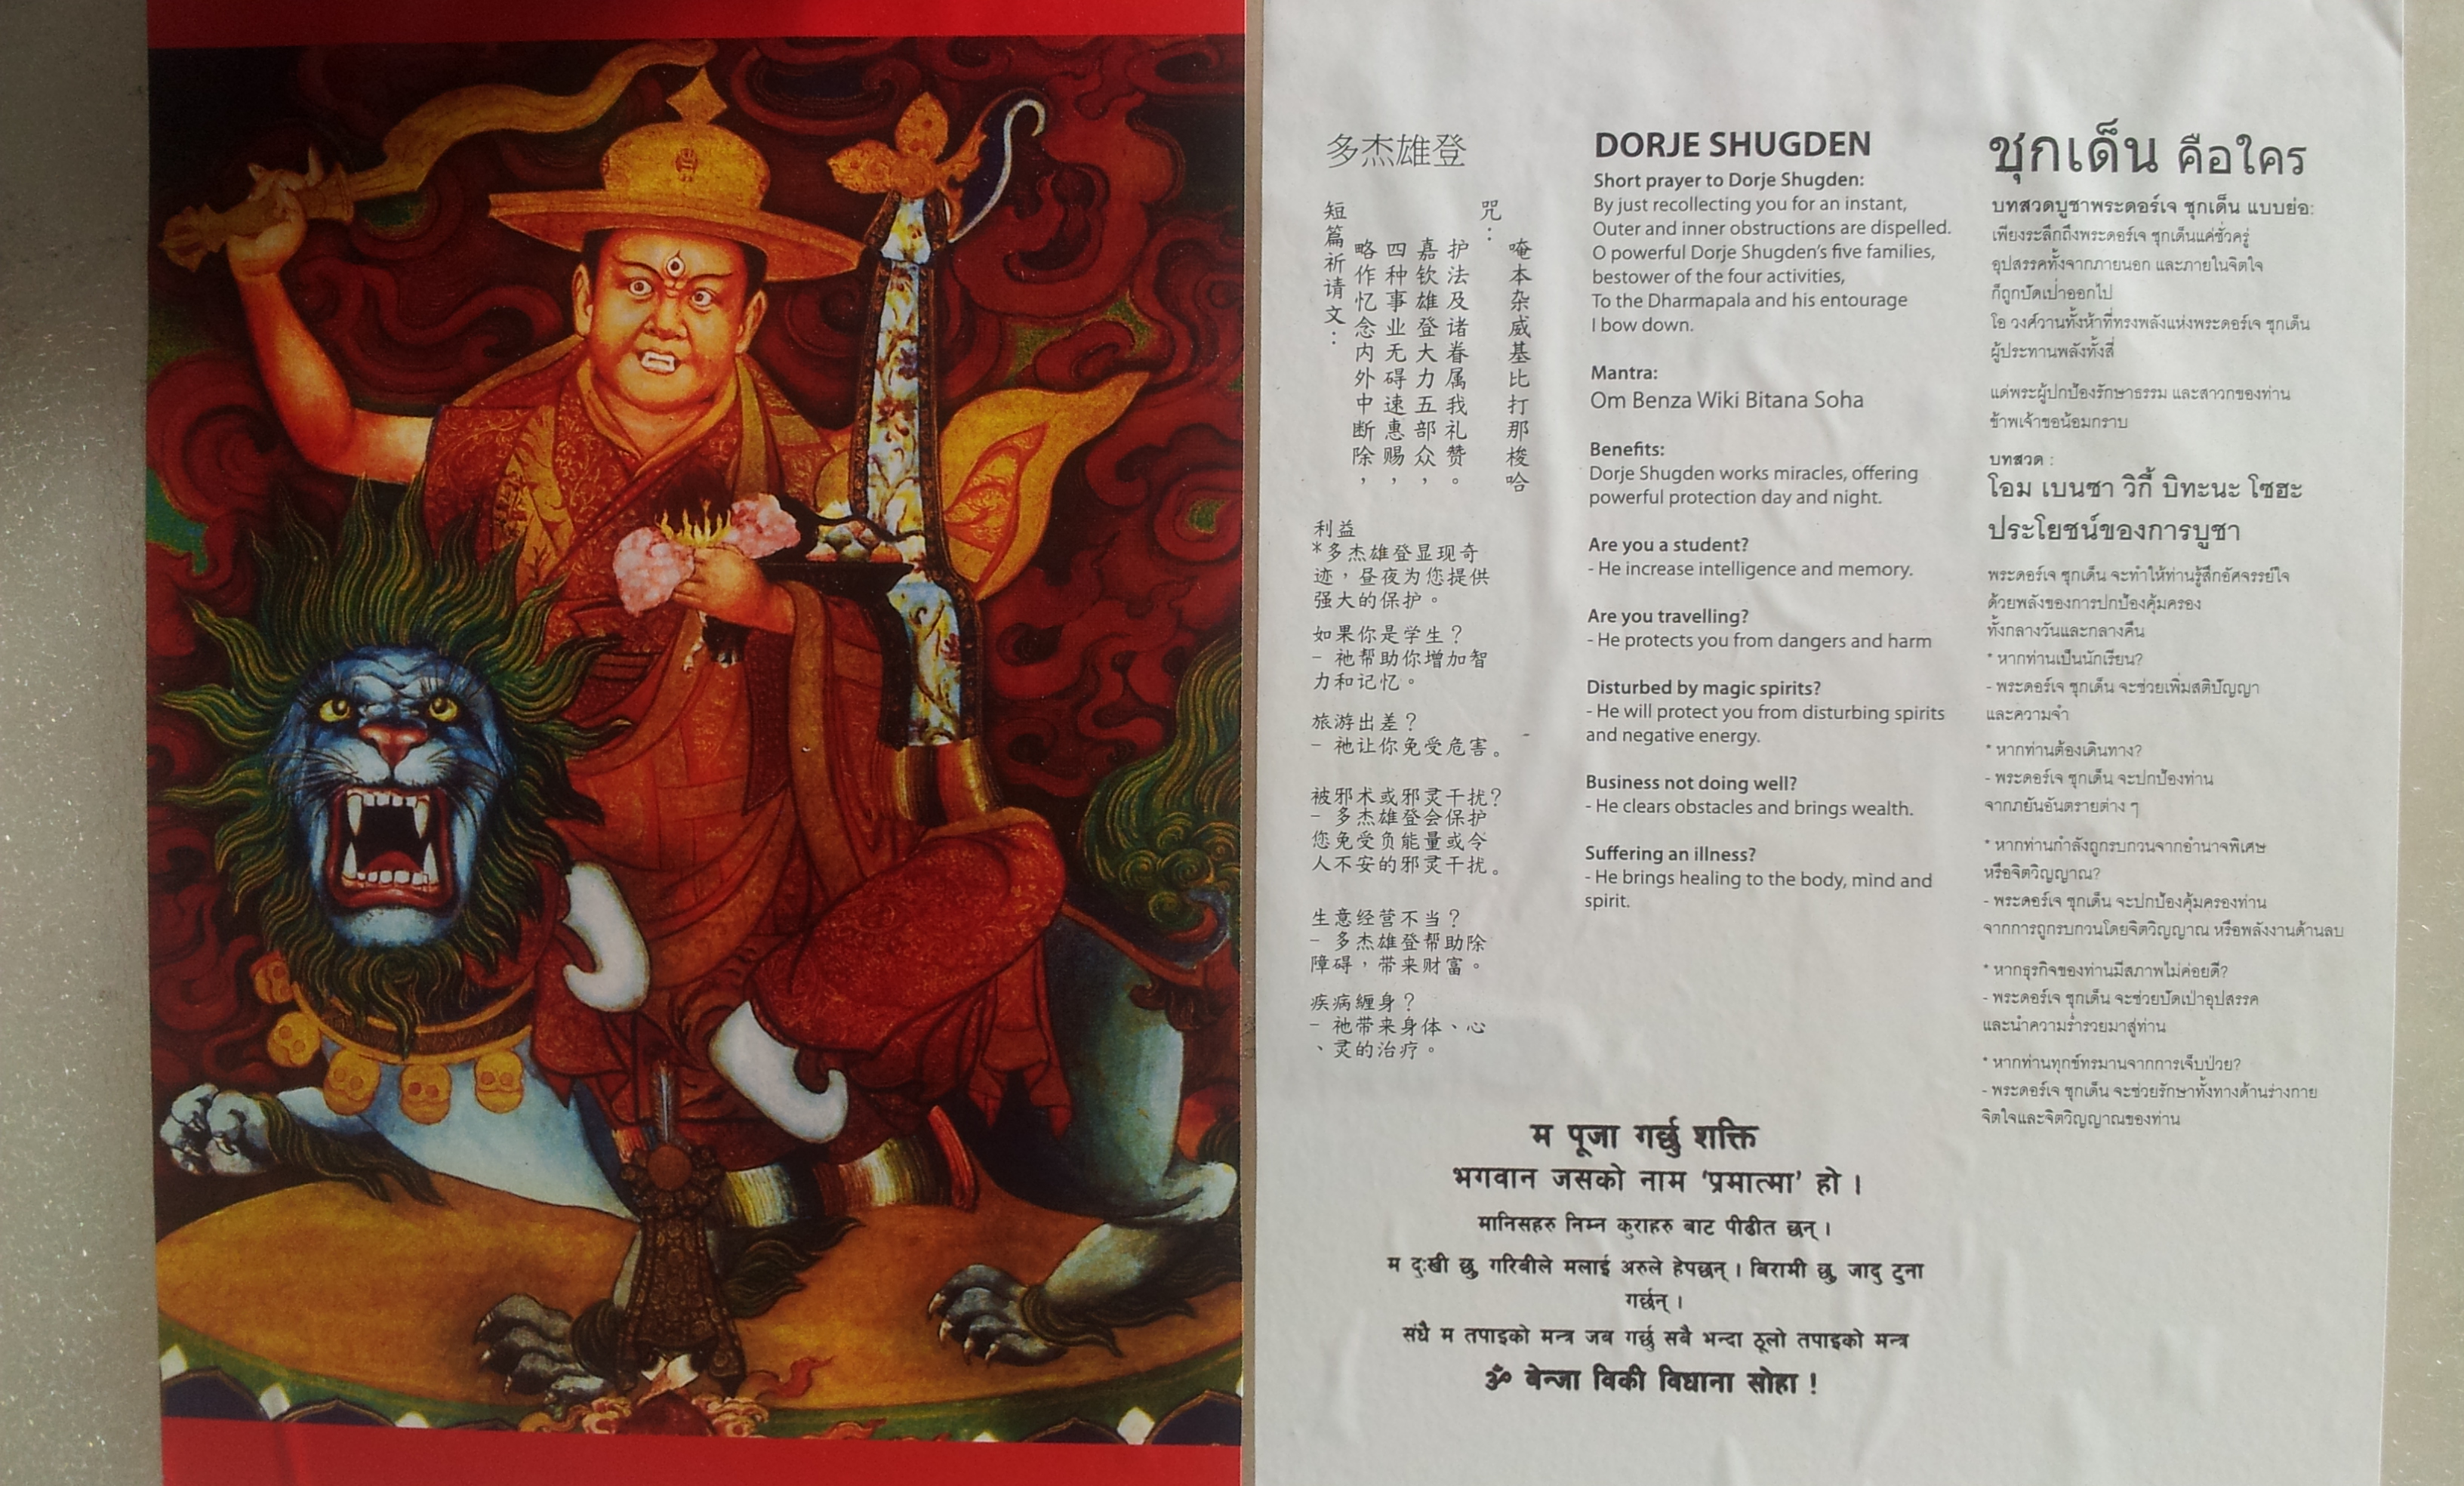 多杰雄登
短篇祈请文：
略作忆念内外中断除，
四种事业无碍速惠赐，
嘉钦雄登大力五部众，
护法及诸眷属我礼赞。
咒：
唵本杂威基比打那梭哈
利益
*多杰雄登显现奇
迹，昼夜为您提供
强大的保护。
如果你是学生？
- 祂帮助你增加智
力和记忆。
旅游出差？
- 祂让你免受危害。
被邪术或邪灵干扰？
- 多杰雄登会保护
您免受负能量或令
人不安的邪灵干扰。
生意经营不当？
- 多杰雄登帮助除
障碍，带来财富。
疾病缠身？
- 祂带来身体、心
、灵的治疗。
DORJE SHUGDEN
Short prayer to Dorje Shugden:
By just recollecting you for an instant,
Outer and inner obstructions are dispelled.
O powerful Dorje Shugden's five families,
bestower of the four activities,
To the Dharmapala and his entourage
I bow down.
Mantra:
Om Benza Wiki Bitana Soha
Benefits:
Dorje Shugden works miracles, offering
powerful protection day and night.
Are you a student?
- He increase intelligence and memory.
Are you travelling?
- He protects you from dangers and harm
Disturbed by magic spirits?
- He will protect you from disturbing spirits
and negative energy.
Business not doing well?
- He clears obstacles and brings wealth.
Suffering an illness?
- He brings healing to the body, mind and
spirit.
ชุกเด็น คือใคร
บทสวดบูชาพระดอร์เจ ชุกเด็น แบบย่อ:
เพียงระลึกถึงพระดอร์เจ ชุกเด็นแค่ชั่วครู่
อุปสรรคทั้งจากภายนอก และภายในจิตใจ
ก็ถูกปัดเป่าออกไป
โอ วงศ์วานทั้งห้าที่ทรงพลังแห่งพระดอร์เจ ชุกเด็น
ผู้ประทานพลังทั้งสี่
แด่พระผู้ปกป้องรักษาธรรม และสาวกของท่าน
ข้าพเจ้าขอน้อมกราบ
บทสวด :
โอม เบนซา วิกี้ บิทะนะ โซฮะ
ประโยชน์ของการบูชา
พระดอร์เจ ชุกเด็น จะทำให้ท่านรู้สึกอัศจรรย์ใจ
ด้วยพลังของการปกป้องคุ้มครอง
ทั้งกลางวันและกลางคืน
* หากท่านเป็นนักเรียน?
- พระดอร์เจ ชุกเด็น จะช่วยเพิ่มสติปัญญา
และความจำ
* หากท่านต้องเดินทาง?
- พระดอร์เจ ชุกเด็น จะปกป้องท่าน
จากภยันอันตรายต่าง ๆ
* หากท่านกำลังถูกรบกวนจากอำนาจพิเศษ
หรือจิตวิญญาณ?
- พระดอร์เจ ชุกเด็น จะปกป้องคุ้มครองท่าน
จากการถูกรบกวนโดยจิตวิญญาณ หรือพลังงานด้านลบ
* หากธุรกิจของท่านมีสภาพไม่ค่อยดี?
- พระดอร์เจ ชุกเด็น จะช่วยปัดเป่าอุปสรรค
และนำความร่ำรวยมาสู่ท่าน
* หากท่านทุกข์ทรมานจากการเจ็บป่วย?
- พระดอร์เจ ชุกเด็น จะช่วยรักษาทั้งทางด้านร่างกาย
จิตใจและจิตวิญญาณของท่าน
म पूजा गर्छु शक्ति
भगवान जसको नाम ‘प्रमात्मा’ हो ।
मानिसहरु निम्न कुराहरु बाट पीढीत छन् ।
म दुःखी छु, गरिबीले मलाई अरुले हेपछन् । बिरामी छु, जादु टुना
गर्छन् ।
संधै म तपाइको मन्त्र जब गर्छु सबै भन्दा ठूलो तपाइको मन्त्र
ॐ बेन्जा विकी विधाना सोहा !